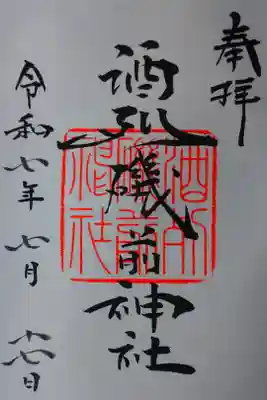 奉拝
酒列磯前神社
酒列
磯前
神社
令和七年七月 日